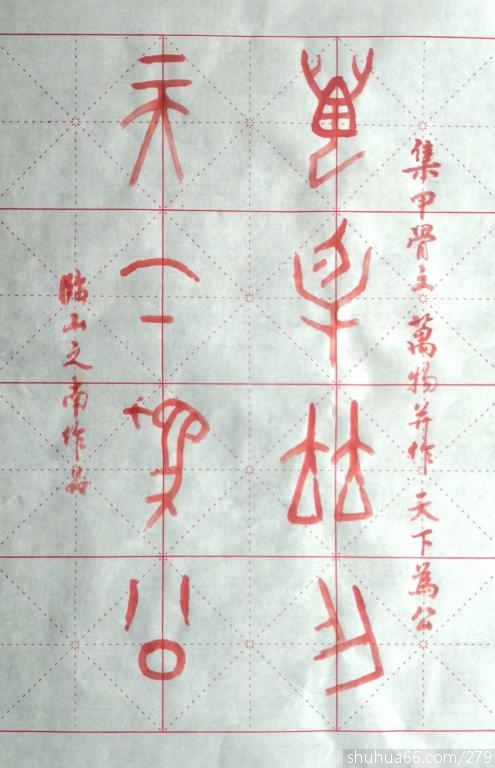 萬物并作
天下為公
集甲骨文 萬物并作 天下為公
臨山之南作品
shuhua66.com/279